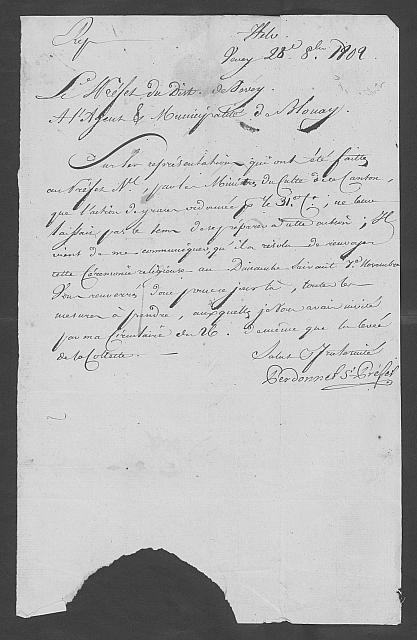 Rep Helv
Vevey 28e 8bre 1802
Le Préfet du Dist. de Vevey
A l'Agent & Municipalité de Blonay.
Sur les représentations qui ont été faites
au Préfet Nal, par les Ministres du Culte de ce Canton,
que l'action de graces ordonnée p. le 31e Ct, ne leur
laissait pas le tems de se préparer à cette action; Il
vient de me communiquer qu'il a résolu de renvoyer
cette Cérémonie religieuse au Dimanche suivant 7e Novembre
Vous renverrés donc pour ce jour là, toutes les
mesures à prendre, auxquelles je vous avais invité
par ma Circulaire du 26. De même que la levée
de la Collecte. —
Salut & Fraternité
Perdonnet Ss Préfet